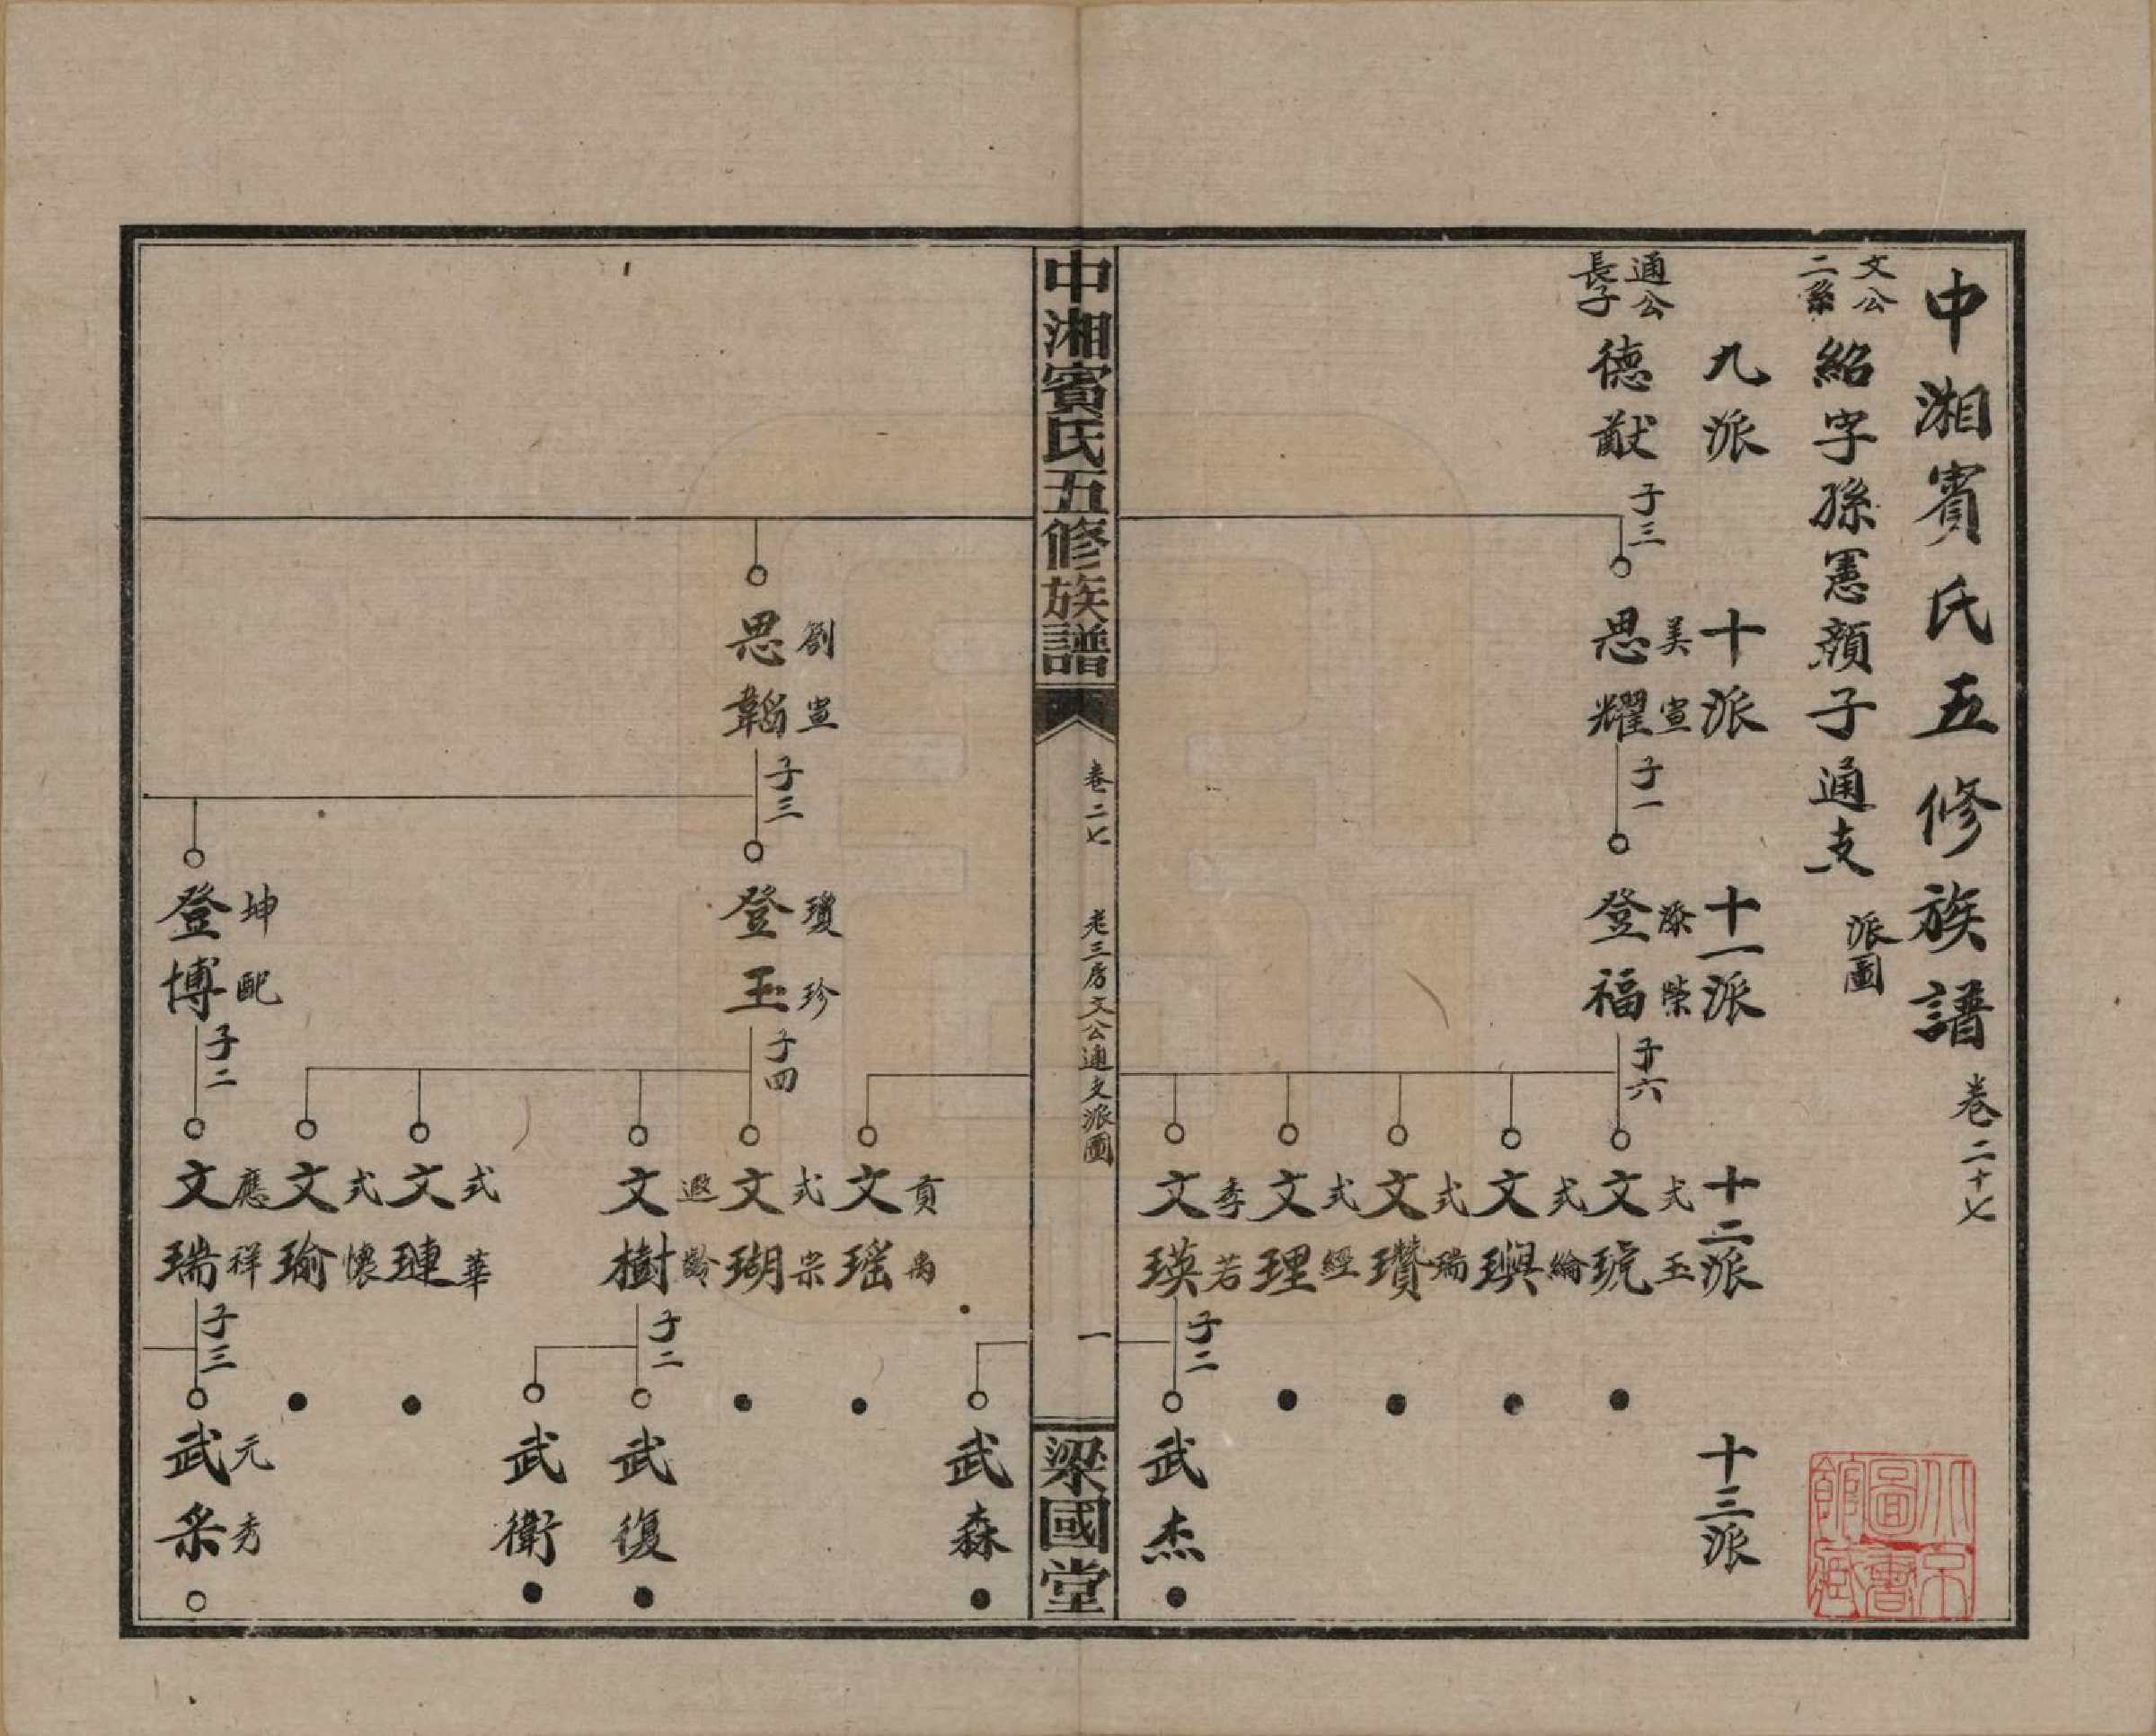 中湘賓氏五修族譜 卷二十七
文公二系 紹字孫憲顏子通支 派圖
九派 十派 十一派 十二派 十三派
通公長子 德猷 子三
思耀 美宣 子一
登福 添榮 子六
文琥 式玉
文璵 式綸
文瓚 式瑞
文理 式經
文瑛 季若 子二
武杰
中湘賓氏五修族譜 卷二七 老三房文公通支派圖 一 梁國堂
武森
文瑶 貢禹
思韜 劉宣 子三
登玉 瓊珍 子四
文瑚 式宗
文樹 遐齡 子二
武復
武衛
文璉 式華
文瑜 式懷
登博 坤配 子二
文瑞 應祥 子三
武采 元秀
北京圖書館藏